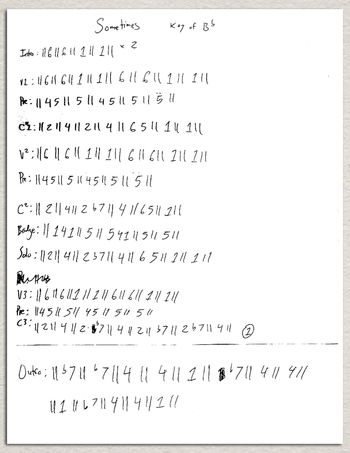 Sometimes Key of Bb
Intro: || 6 || 6 || 1 || 1 || x 2
V1: || 6 || 6 || 1 || 1 || 6 || 6 || 1 || 1 ||
Pre: || 4 5 || 5 || 4 5 || 5 || 5 ||
C1: || 2 || 4 || 2 || 4 || 6 5 || 1 || 1 ||
V2: || 6 || 6 || 1 || 1 || 6 || 6 || 1 || 1 ||
Pre: || 4 5 || 5 || 4 5 || 5 || 5 ||
C2: || 2 || 4 || 2 b7 || 4 || 6 5 || 1 ||
Bridge: || 1 4 1 || 5 || 5 4 1 || 5 || 5 ||
Solo: || 2 || 4 || 2 b7 || 4 || 6 5 || 1 || 1 ||
V3: || 6 || 6 || 1 || 1 || 6 || 6 || 1 || 1 ||
Pre: || 4 5 || 5 || 4 5 || 5 || 5 ||
C3: || 2 || 4 || 2 b7 || 4 || 2 || b7 || 2 b7 || 4 || 1
Outro: || b7 || b7 || 4 || 4 || 1 || b7 || 4 || 4 ||
|| 1 || b7 || 4 || 4 || 1 ||